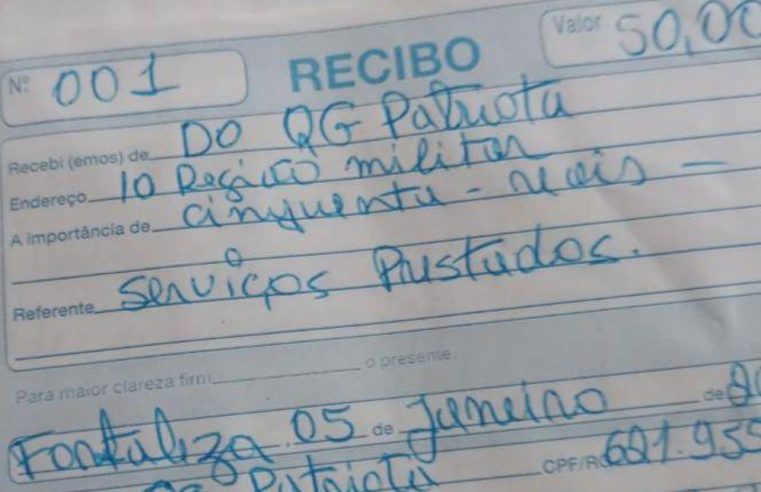 Nº 001 RECIBO Valor 50,00
Recebi (emos) de DO QG Patriota
Endereço 10 Região militar
A importância de cinquenta - reais -
Referente serviços Prestados.
Para maior clareza firm o presente.
Fortaleza 05 de Janeiro de
Patriota CPF/R 691.955